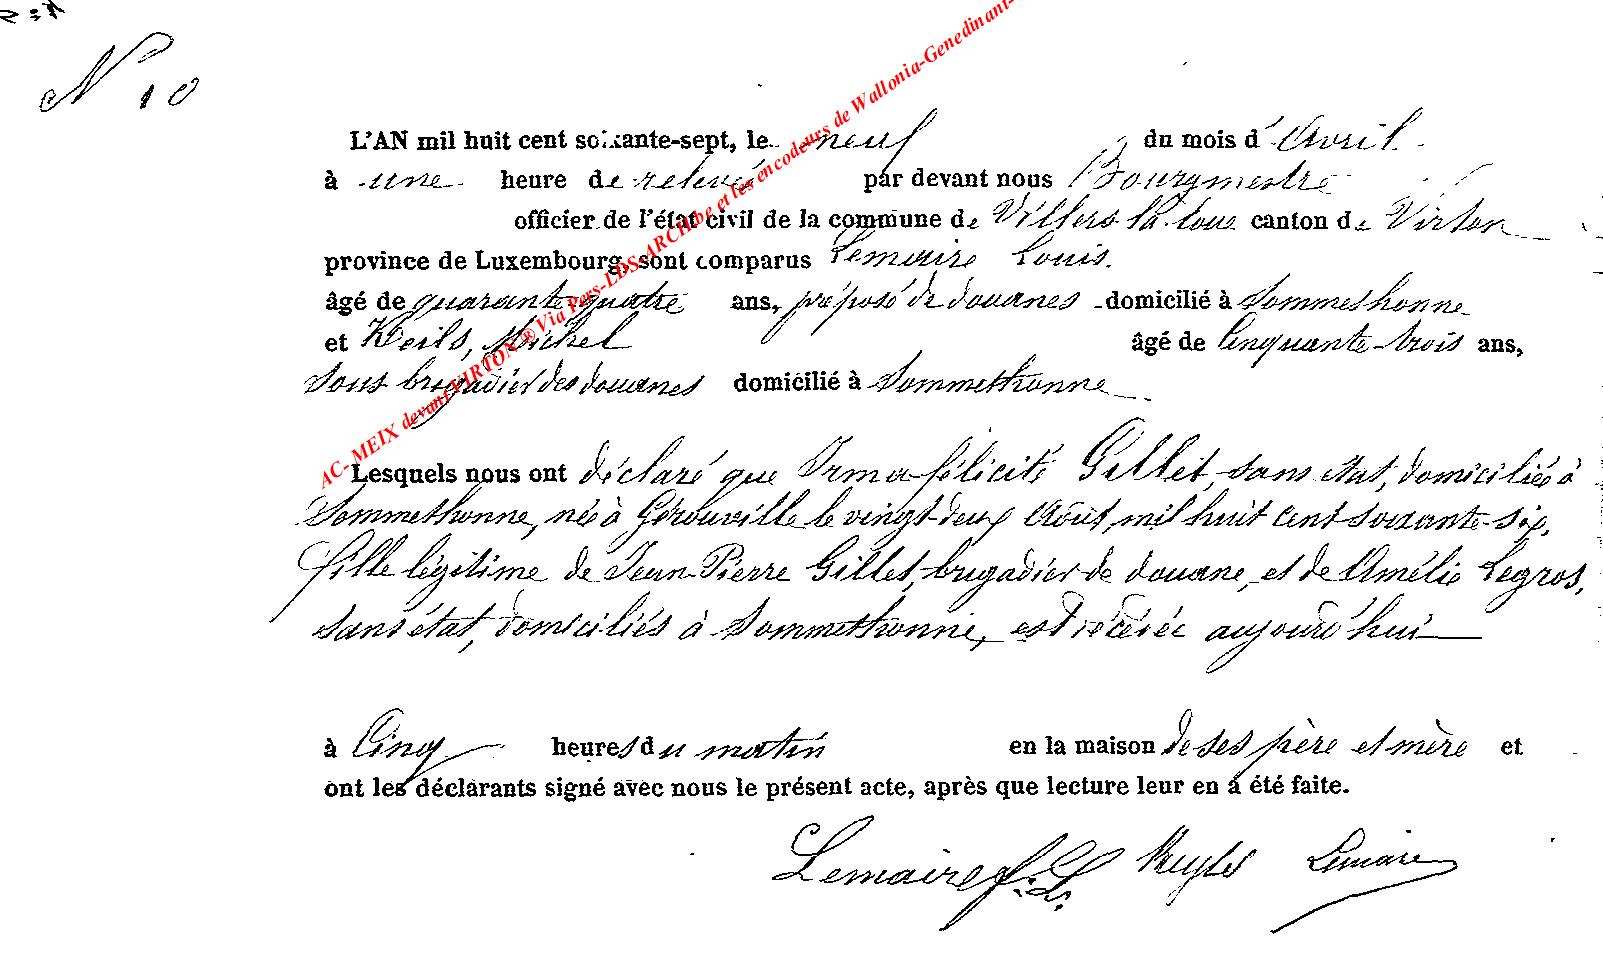 N 10
L'AN mil huit cent soixante-sept, le neuf du mois d'Avril.
à une heure de relevée par devant nous Bourgmestre
officier de l'état civil de la commune de Villers la loue canton de Virton
province de Luxembourg, sont comparus Lemaire Louis.
âgé de quarante quatre ans, préposé de douanes domicilié à Sommethonne
et Keils, Michel âgé de Cinquante-trois ans,
Sous brigadier des douanes domicilié à Sommethonne
Lesquels nous ont déclaré que Irma félicité Gillet, sans état, domiciliée à
Sommethonne, née à Gérouville le vingt-deux Août, mil huit cent soixante-six,
fille légitime de Jean-Pierre Gillet, brigadier de douane, et de Amélie Legros,
sans état, domiciliés à Sommethonne, est décédée aujourd'hui
à Cinq heures du matin en la maison de ses père et mère et
ont les déclarants signé avec nous le présent acte, après que lecture leur en a été faite.
Lemaire Lemaire
AC- MEIX devant VIRTON ® Via Pers-LDS-ARCHbe et les encodeurs de Wallonia-Genedinant-